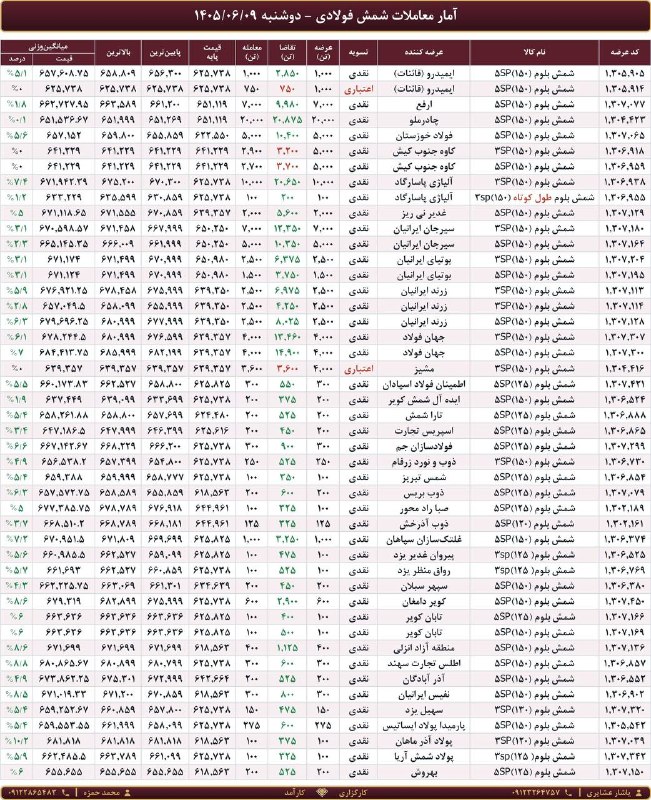 آمار معاملات شمش فولادی - دوشنبه ۱۴۰۵/۰۶/۰۹
کد عرضه نام کالا عرضه کننده تسویه عرضه (تن) تقاضا (تن) معامله (تن) قیمت پایه پایین‌ترین بالاترین میانگین‌وزنی قیمت درصد
۱,۳۰۵,۹۰۵ شمش بلوم (۱۵۰)۵SP ایمیدرو (قائنات) نقدی ۱,۰۰۰ ۲,۸۵۰ ۱,۰۰۰ ۶۲۵,۷۳۸ ۶۵۶,۳۰۰ ۶۵۸,۸۰۹ ۶۵۷,۶۰۸.۷۵ %۵/۱
۱,۳۰۵,۹۱۴ شمش بلوم (۱۵۰)۵SP ایمیدرو (قائنات) اعتباری ۱,۰۰۰ ۷۵۰ ۷۵۰ ۶۲۵,۷۳۸ ۶۲۵,۷۳۸ ۶۲۵,۷۳۸ ۶۲۵,۷۳۸ %۰
۱,۳۰۷,۰۷۷ شمش بلوم (۱۵۰)۵SP ارفع نقدی ۷,۰۰۰ ۹,۹۸۰ ۷,۰۰۰ ۶۵۱,۱۱۹ ۶۶۱,۲۰۰ ۶۶۳,۵۸۹ ۶۶۲,۷۲۷.۹۵ %۱/۸
۱,۳۰۴,۴۲۳ شمش بلوم (۱۵۰)۵SP چادرملو نقدی ۲۰,۰۰۰ ۲۰,۸۷۵ ۲۰,۰۰۰ ۶۵۱,۱۱۹ ۶۵۱,۲۶۹ ۶۵۱,۹۹۹ ۶۵۱,۵۳۶.۶۷ %۰/۱
۱,۳۰۷,۰۶۵ شمش بلوم (۱۵۰)۵SP فولاد خوزستان نقدی ۵,۰۰۰ ۱۰,۴۰۰ ۵,۰۰۰ ۶۲۲,۵۵۰ ۶۵۵,۸۵۹ ۶۵۹,۸۰۰ ۶۵۷,۱۵۲ %۵/۶
۱,۳۰۶,۹۱۸ شمش بلوم (۱۵۰)۳SP کاوه جنوب کیش نقدی ۵,۰۰۰ ۳,۲۰۰ ۲,۹۰۰ ۶۴۱,۲۲۹ ۶۴۱,۲۲۹ ۶۴۱,۲۲۹ ۶۴۱,۲۲۹ %۰
۱,۳۰۶,۹۵۹ شمش بلوم (۱۵۰)۵SP کاوه جنوب کیش نقدی ۵,۰۰۰ ۳,۷۰۰ ۲,۷۰۰ ۶۴۱,۲۲۹ ۶۴۱,۲۲۹ ۶۴۱,۲۲۹ ۶۴۱,۲۲۹ %۰
۱,۳۰۶,۹۳۸ شمش بلوم (۱۵۰)۳SP آلیاژی پاسارگاد نقدی ۱۰,۰۰۰ ۲۰,۶۵۰ ۱۰,۰۰۰ ۶۲۵,۷۳۸ ۶۷۰,۳۰۰ ۶۷۵,۲۰۰ ۶۷۱,۹۴۲.۳۹ %۷/۴
۱,۳۰۶,۹۵۵ شمش بلوم طول کوتاه (۱۵۰)۳sp آلیاژی پاسارگاد نقدی ۱۰۰ ۲۰۰ ۱۰۰ ۶۲۵,۷۳۸ ۶۳۰,۸۵۹ ۶۳۵,۵۹۹ ۶۳۳,۲۲۹ %۱/۲
۱,۳۰۷,۱۲۹ شمش بلوم (۱۵۰)۵SP غدیر نی ریز نقدی ۲,۰۰۰ ۵,۶۰۰ ۲,۰۰۰ ۶۳۹,۳۵۷ ۶۷۰,۸۵۹ ۶۷۱,۵۵۵ ۶۷۱,۱۱۸.۶۵ %۵
۱,۳۰۷,۱۸۰ شمش بلوم (۱۵۰)۳SP سیرجان ایرانیان نقدی ۷,۰۰۰ ۱۲,۳۵۰ ۷,۰۰۰ ۶۵۰,۲۵۰ ۶۶۷,۹۹۹ ۶۷۱,۴۵۸ ۶۷۰,۵۹۸.۵۷ %۳/۱
۱,۳۰۷,۱۶۴ شمش بلوم (۱۵۰)۵SP سیرجان ایرانیان نقدی ۵,۰۰۰ ۱۰,۳۵۰ ۵,۰۰۰ ۶۵۰,۲۵۰ ۶۶۱,۹۹۹ ۶۶۶,۰۰۹ ۶۶۵,۱۴۵.۳۵ %۲/۳
۱,۳۰۷,۲۰۴ شمش بلوم (۱۵۰)۳SP بوتیای ایرانیان نقدی ۲,۵۰۰ ۶,۳۷۵ ۲,۵۰۰ ۶۵۰,۹۸۰ ۶۷۰,۹۹۹ ۶۷۱,۴۹۹ ۶۷۱,۱۷۴ %۳/۱
۱,۳۰۷,۱۹۵ شمش بلوم (۱۵۰)۵SP بوتیای ایرانیان نقدی ۱,۵۰۰ ۳,۷۵۰ ۱,۵۰۰ ۶۵۰,۹۸۰ ۶۷۰,۹۹۹ ۶۷۱,۴۹۹ ۶۷۱,۱۲۴ %۳/۱
۱,۳۰۷,۱۱۳ شمش بلوم (۱۵۰)۵SP زرند ایرانیان نقدی ۲,۵۰۰ ۶,۹۷۵ ۲,۵۰۰ ۶۳۹,۳۵۰ ۶۷۵,۹۹۹ ۶۷۸,۴۵۸ ۶۷۶,۹۲۱.۲۵ %۵/۹
۱,۳۰۷,۱۱۴ شمش بلوم (۱۵۰)۳SP زرند ایرانیان نقدی ۲,۵۰۰ ۴,۲۵۰ ۲,۵۰۰ ۶۳۹,۳۵۰ ۶۵۵,۹۹۹ ۶۵۸,۰۹۹ ۶۵۷,۰۴۹.۵ %۲/۸
۱,۳۰۷,۱۲۸ شمش بلوم (۱۵۰)۵SP زرند ایرانیان نقدی ۲,۵۰۰ ۸,۰۲۵ ۲,۵۰۰ ۶۳۹,۳۵۰ ۶۷۷,۹۹۹ ۶۸۰,۹۹۹ ۶۷۹,۶۹۶.۲۵ %۶/۳
۱,۳۰۷,۳۰۷ شمش بلوم (۱۵۰)۳SP جهان فولاد نقدی ۴,۰۰۰ ۱۳,۴۶۰ ۴,۰۰۰ ۶۳۹,۳۵۰ ۶۷۶,۵۹۹ ۶۸۰,۹۹۹ ۶۷۸,۲۴۴.۵ %۶/۱
۱,۳۰۷,۳۰۰ شمش بلوم (۱۵۰)۵SP جهان فولاد نقدی ۴,۰۰۰ ۱۴,۹۰۰ ۴,۰۰۰ ۶۳۹,۳۵۰ ۶۸۲,۱۹۹ ۶۸۵,۹۹۹ ۶۸۴,۴۱۳.۷۵ %۷
۱,۳۰۴,۴۱۶ شمش بلوم (۱۵۰)۳SP مشیز اعتباری ۴,۰۰۰ ۳,۶۰۰ ۳,۶۰۰ ۶۳۹,۳۵۷ ۶۳۹,۳۵۷ ۶۳۹,۳۵۷ ۶۳۹,۳۵۷ %۰
۱,۳۰۷,۴۲۱ شمش بلوم (۱۲۵)۵SP اطمینان فولاد اسپادان نقدی ۳۰۰ ۵۵۰ ۳۰۰ ۶۲۵,۸۲۵ ۶۵۸,۸۰۰ ۶۶۲,۵۲۷ ۶۶۰,۱۷۳.۸۳ %۵/۵
۱,۳۰۶,۵۲۴ شمش بلوم (۱۵۰)۵SP ایده آل شمش کویر نقدی ۲۰۰ ۳۷۵ ۲۰۰ ۶۲۵,۸۲۵ ۶۳۳,۶۹۹ ۶۳۹,۰۹۹ ۶۳۷,۴۴۹ %۱/۹
۱,۳۰۶,۸۸۸ شمش بلوم (۱۲۵)۵SP تارا شمش نقدی ۲۰۰ ۵۲۵ ۲۰۰ ۶۲۴,۴۸۰ ۶۵۷,۶۹۹ ۶۵۸,۸۰۰ ۶۵۸,۲۶۱.۸۸ %۵/۴
۱,۳۰۶,۸۶۵ شمش بلوم (۱۲۵)۵SP اسپریس تجارت نقدی ۲۰۰ ۴۵۰ ۲۰۰ ۶۲۵,۶۱۶ ۶۴۶,۳۹۹ ۶۴۷,۹۹۹ ۶۴۷,۱۸۶.۵ %۳/۴
۱,۳۰۷,۲۹۹ شمش بلوم (۱۲۵)۵SP فولادسازان جم نقدی ۳۰۰ ۹۰۰ ۳۰۰ ۶۲۵,۷۳۸ ۶۶۶,۲۰۰ ۶۶۸,۲۲۹ ۶۶۷,۱۴۲.۶۷ %۶/۶
۱,۳۰۶,۷۳۰ شمش بلوم (۱۵۰)۳SP ذوب و نورد زرفام نقدی ۲۵۰ ۵۲۵ ۲۵۰ ۶۲۵,۷۳۸ ۶۵۴,۸۰۰ ۶۵۷,۳۹۹ ۶۵۶,۵۳۸.۲ %۴/۹
۱,۳۰۶,۸۵۴ شمش بلوم (۱۲۵)۵SP شمس تبریز نقدی ۱۰۰ ۳۵۰ ۱۰۰ ۶۲۵,۷۳۸ ۶۵۸,۷۷۷ ۶۵۹,۹۹۹ ۶۵۹,۳۸۸ %۵/۴
۱,۳۰۷,۰۷۹ شمش بلوم (۱۲۵)۵SP ذوب بریس نقدی ۲۰۰ ۶۰۰ ۲۰۰ ۶۱۸,۵۶۳ ۶۵۵,۸۵۹ ۶۵۸,۵۸۹ ۶۵۷,۵۷۲.۷۵ %۶/۳
۱,۳۰۲,۱۸۹ شمش بلوم (۱۲۵)۵SP صبا راد محور نقدی ۱۰۰ ۳۲۵ ۱۰۰ ۶۴۴,۹۶۱ ۶۷۶,۹۱۸ ۶۷۸,۷۸۹ ۶۷۷,۳۸۵.۷۵ %۵
۱,۳۰۲,۱۶۱ شمش بلوم (۱۲۰)۵SP ذوب آذرخش نقدی ۱۲۵ ۳۲۵ ۱۲۵ ۶۴۴,۹۶۱ ۶۶۸,۱۸۱ ۶۶۸,۷۸۹ ۶۶۸,۵۱۰.۲ %۳/۷
۱,۳۰۶,۳۷۴ شمش بلوم (۱۵۰)۵SP غلتک‌سازان سپاهان نقدی ۱,۰۰۰ ۳,۲۵۰ ۱,۰۰۰ ۶۲۵,۸۲۵ ۶۶۹,۶۹۹ ۶۷۱,۸۰۹ ۶۷۰,۹۵۱.۵ %۷/۲
۱,۳۰۶,۵۲۵ شمش بلوم (۱۲۵)۳sp پیروان غدیر یزد نقدی ۱۰۰ ۴۷۵ ۱۰۰ ۶۲۵,۸۲۵ ۶۵۹,۰۹۹ ۶۶۲,۵۲۷ ۶۶۰,۹۸۵.۵ %۵/۶
۱,۳۰۶,۷۶۹ شمش بلوم (۱۲۵)۳sp رواق منظر یزد نقدی ۱۰۰ ۵۲۵ ۱۰۰ ۶۲۵,۷۳۸ ۶۶۰,۸۵۹ ۶۶۲,۵۲۷ ۶۶۱,۶۹۳ %۵/۷
۱,۳۰۶,۳۸۰ شمش بلوم (۱۵۰)۵SP سپهر سبلان نقدی ۲۰۰ ۴۵۰ ۲۰۰ ۶۳۴,۶۳۹ ۶۶۱,۳۰۱ ۶۶۳,۰۶۹ ۶۶۲,۲۲۵.۷۵ %۴/۳
۱,۳۰۷,۴۵۰ شمش بلوم (۱۵۰)۵SP کویر دامغان نقدی ۶۰۰ ۲,۹۰۰ ۶۰۰ ۶۲۵,۷۳۸ ۶۷۵,۹۹۹ ۶۸۲,۸۹۹ ۶۷۹,۳۱۹ %۸/۶
۱,۳۰۷,۱۶۶ شمش بلوم (۱۲۵)۵SP تابان کویر نقدی ۱۰۰ ۴۰۰ ۱۰۰ ۶۲۵,۷۳۸ ۶۶۳,۶۳۶ ۶۶۳,۶۳۶ ۶۶۳,۶۳۶ %۶
۱,۳۰۷,۱۶۹ شمش بلوم (۱۵۰)۵SP تابان کویر نقدی ۱۰۰ ۵۰۰ ۱۰۰ ۶۲۵,۷۳۸ ۶۶۳,۶۳۶ ۶۶۳,۶۳۶ ۶۶۳,۶۳۶ %۶
۱,۳۰۷,۱۳۶ شمش بلوم (۱۵۰)۵SP منطقه آزاد انزلی نقدی ۴۰۰ ۱,۱۲۵ ۴۰۰ ۶۱۸,۵۶۳ ۶۷۱,۶۹۹ ۶۷۱,۶۹۹ ۶۷۱,۶۹۹ %۸/۶
۱,۳۰۶,۸۵۷ شمش بلوم (۱۵۰)۵SP اطلس تجارت سهند نقدی ۳۰۰ ۶۰۰ ۳۰۰ ۶۲۵,۷۳۸ ۶۸۰,۷۹۹ ۶۸۰,۸۹۹ ۶۸۰,۸۶۵.۶۷ %۸/۸
۱,۳۰۶,۵۵۲ شمش بلوم (۱۵۰)۵SP آذر آبادگان نقدی ۲۰۰ ۵۲۵ ۲۰۰ ۶۴۲,۶۶۴ ۶۷۲,۹۹۹ ۶۷۵,۳۰۱ ۶۷۳,۸۶۲.۲۵ %۴/۹
۱,۳۰۶,۹۰۲ شمش بلوم (۱۵۰)۵SP نفیس ایرانیان نقدی ۳۰۰ ۸۰۰ ۳۰۰ ۶۱۸,۵۶۳ ۶۷۰,۸۵۹ ۶۷۱,۲۰۰ ۶۷۱,۰۱۹.۳۳ %۸/۵
۱,۳۰۷,۳۲۰ شمش بلوم (۱۳۰)۳SP سهیل یزد نقدی ۱۵۰ ۴۷۵ ۱۵۰ ۶۲۵,۷۳۸ ۶۵۷,۸۰۰ ۶۶۰,۸۵۹ ۶۵۹,۲۵۲.۶۷ %۵/۴
۱,۳۰۵,۵۴۲ شمش بلوم (۱۵۰)۳SP پارمیدا پولاد ایساتیس نقدی ۲۷۵ ۶۰۰ ۲۷۵ ۶۲۵,۷۳۸ ۶۵۸,۰۹۹ ۶۶۱,۹۹۹ ۶۵۹,۵۵۳.۵۵ %۵/۴
۱,۳۰۷,۰۳۹ شمش بلوم (۱۲۰)۳SP پولاد آذر ماهان نقدی ۱۰۰ ۳۷۵ ۱۰۰ ۶۱۸,۵۶۳ ۶۸۱,۸۱۸ ۶۸۱,۸۱۸ ۶۸۱,۸۱۸ %۱۰/۲
۱,۳۰۷,۳۴۲ شمش بلوم (۱۲۵)۳sp پولاد شمش آریا نقدی ۱۰۰ ۳۲۵ ۱۰۰ ۶۲۵,۷۳۸ ۶۶۱,۰۹۹ ۶۶۳,۷۸۹ ۶۶۲,۴۸۵.۵ %۵/۹
۱,۳۰۷,۱۵۰ شمش بلوم (۱۲۵)۵SP بهروش نقدی ۲۰۰ ۵۲۵ ۲۰۰ ۶۱۸,۵۶۳ ۶۵۵,۶۵۵ ۶۵۵,۶۵۵ ۶۵۵,۶۵۵ %۶
یاشار عشایری ۰۹۱۲۳۲۶۴۷۵۷ کارگزاری کارآمد محمد حمزه ۰۹۱۲۲۸۶۵۴۸۳